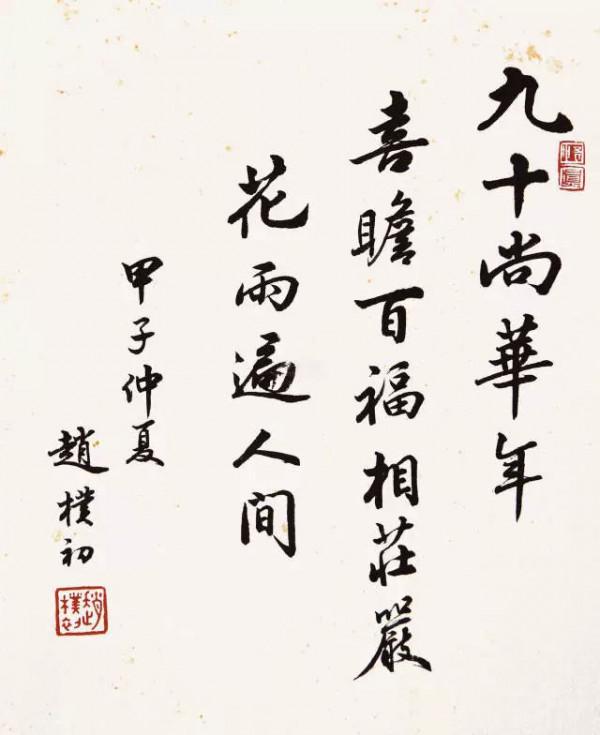 九十尚華年
喜瞻百福相莊嚴
花雨遍人间
甲子仲夏
趙樸初
趙樸初